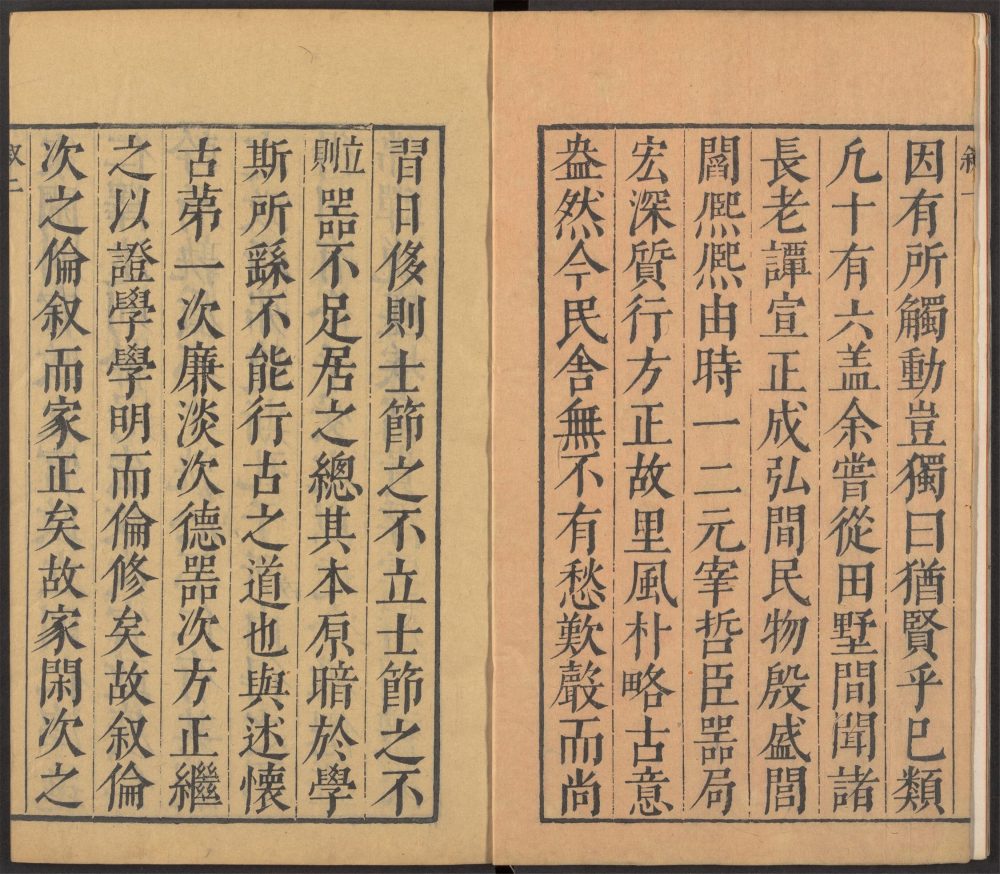 叙一
因有所觸動豈獨曰猶賢乎已類
凢十有六盖余嘗從田墅間聞諸
長老譚宣正成弘間民物殷盛閭
閻熈熈由時一二元宰哲臣噐局
宏深質行方正故里風朴略古意
盎然今民舎無不有愁歎聲而尚
習日侈則士節之不立士節之不
立則噐不足居之總其本原暗於學
斯所繇不能行古之道也與述懷
古苐一次廉淡次德噐次方正繼
之以證學學明而倫修矣故叙倫
次之倫叙而家正矣故家閑次之
叙二